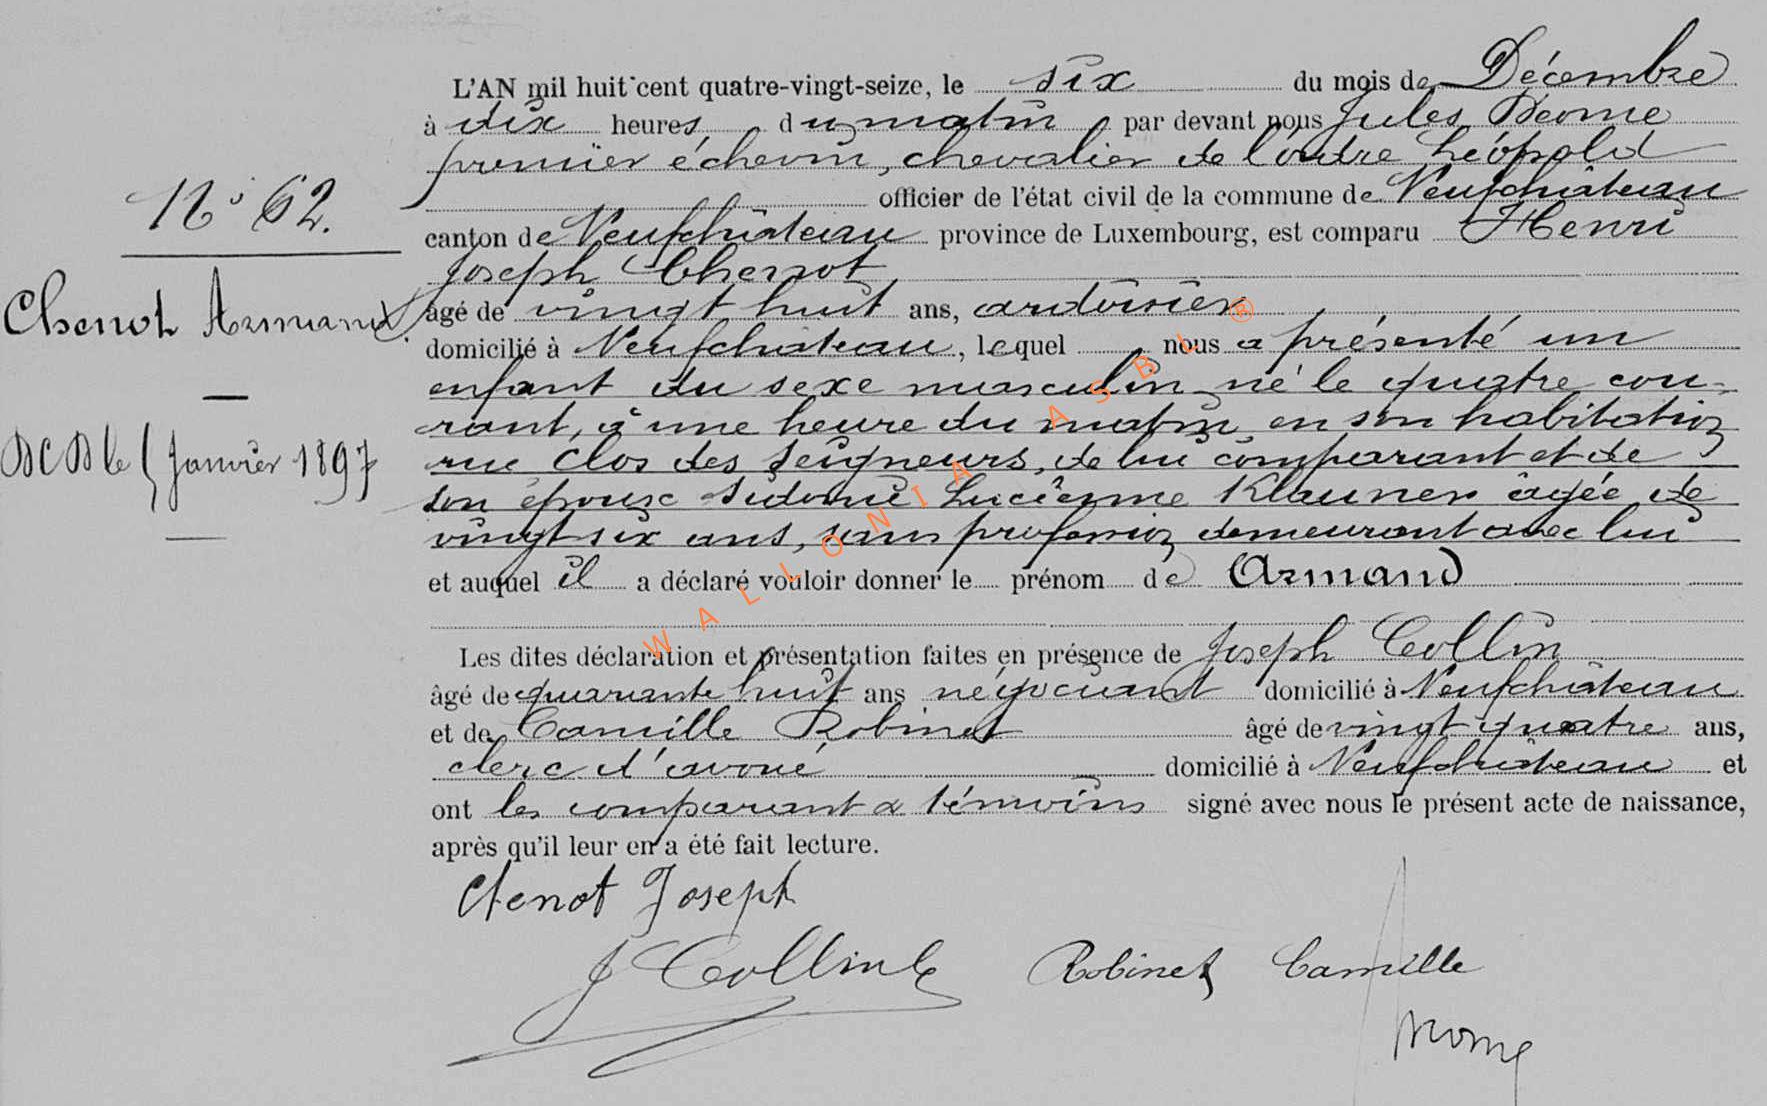 L'AN mil huit cent quatre-vingt-seize, le six du mois de Décembre
à dix heures du matin par devant nous Jules Deome
premier échevin, chevalier de l'ordre Léopold
officier de l'état civil de la commune de Neufchâteau
canton de Neufchâteau province de Luxembourg, est comparu Henri
Joseph Chenot
âgé de vingt huit ans, ardoisier
domicilié à Neufchâteau, lequel nous a présenté un
enfant du sexe masculin né le quatre cou-
rant, à une heure du matin en son habitation
rue Clos des Seigneurs, de lui comparant et de
son épouse Sidonie Lucienne Klauner âgée de
vingt six ans, sans profession demeurant avec lui
et auquel il a déclaré vouloir donner le prénom de Armand
Les dites déclaration et présentation faites en présence de Joseph Collin
âgé de quarante huit ans négociant domicilié à Neufchâteau
et de Camille Robinet âgé de vingt quatre ans,
clerc d'avoué domicilié à Neufchâteau et
ont les comparant & témoins signé avec nous le présent acte de naissance,
après qu'il leur en a été fait lecture.
N° 62.
Chenot Armand
DCD le 5 Janvier 1897
Chenot Joseph
J Collin
Robinet Camille
WALLONIA ASBL ®